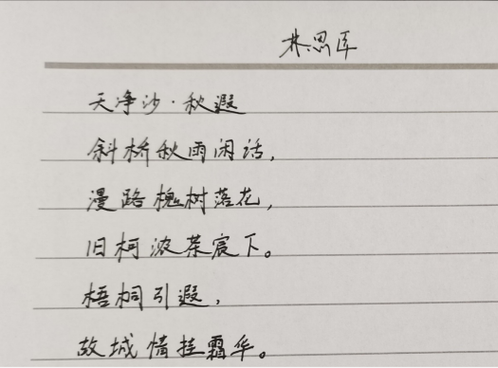 林思匡
天净沙·秋遐
斜桥秋雨闲话，
漫路槐树落花，
旧柯浓茶宸下。
梧桐引遐，
故城情挂霜华。